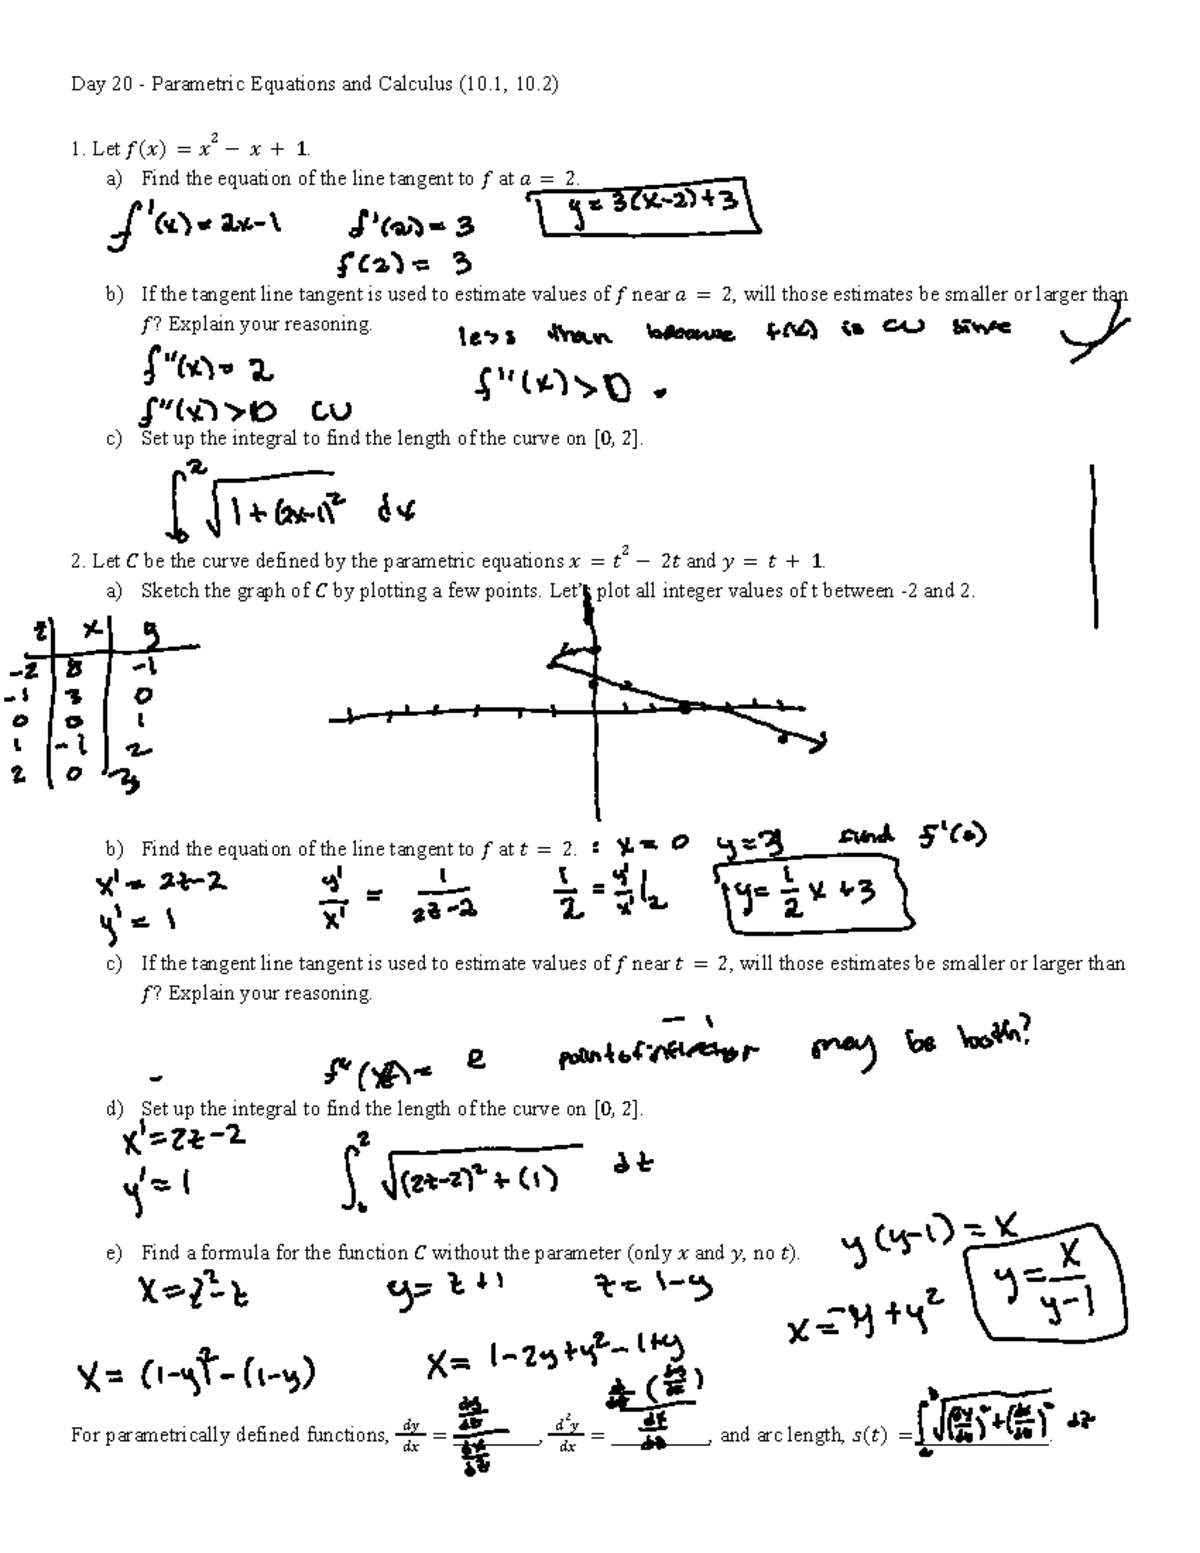 Day 20 - Parametric Equations and Calculus (10.1, 10.2)
1. Let f(x) = x² − x + 1.
a) Find the equation of the line tangent to f at a = 2.
f'(x) = 2x-1 f'(2) = 3 y = 3(x-2)+3
f(2) = 3
b) If the tangent line tangent is used to estimate values of f near a = 2, will those estimates be smaller or larger than
f? Explain your reasoning. less than because f(x) is CU since
f''(x) = 2 f''(x) > 0.
f''(x) > 0 CU
c) Set up the integral to find the length of the curve on [0, 2].
∫₀² √(1+(2x-1)²) dx
2. Let C be the curve defined by the parametric equations x = t² − 2t and y = t + 1.
a) Sketch the graph of C by plotting a few points. Let's plot all integer values of t between -2 and 2.
t x y
-2 8 -1
-1 3 0
0 0 1
1 -1 2
2 0 3
b) Find the equation of the line tangent to f at t = 2. : x = 0 y = 3 find f'(0)
x' = 2t-2 y'/x' = 1/(2t-2) 1/2 = y'/x' |₂ y = 1/2 x + 3
y' = 1
c) If the tangent line tangent is used to estimate values of f near t = 2, will those estimates be smaller or larger than
f? Explain your reasoning.
point of inflection may be both?
d) Set up the integral to find the length of the curve on [0, 2].
x' = 2t-2 ∫₀² √((2t-2)² + (1)) dt
y' = 1
e) Find a formula for the function C without the parameter (only x and y, no t). y(y-1) = x
x = t² - t y = t+1 t = 1-y x = -y + y² y = x/(y-1)
x = (1-y)² - (1-y) x = 1-2y+y²-1+y
For parametrically defined functions, dy/dx = (dy/dt)/(dx/dt), d²y/dx = , and arc length, s(t) =